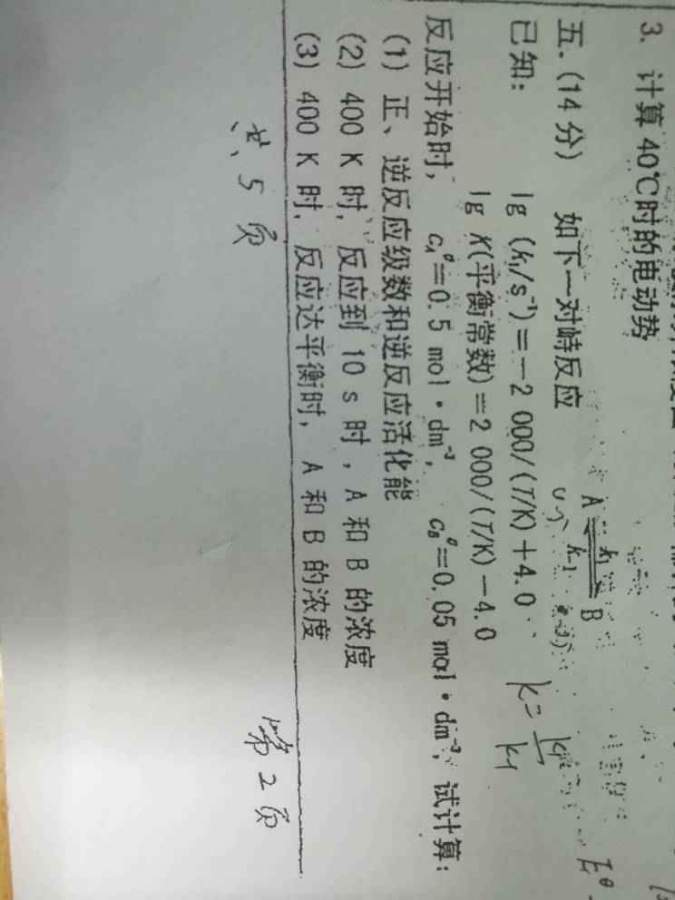 3. 计算 40℃时的电动势
五.(14 分) 如下一对峙反应 A ⇌ B
k₁
k₋₁
已知: lg (k₁/s⁻¹)=-2 000/(T/K)+4.0
lg K(平衡常数)=2 000/(T/K)-4.0
k=
k₁
反应开始时, c_A⁰=0.5 mol·dm⁻³, c_B⁰=0.05 mol·dm⁻³, 试计算:
(1) 正、逆反应级数和逆反应活化能
(2) 400 K 时, 反应到 10 s 时, A 和 B 的浓度
(3) 400 K 时, 反应达平衡时, A 和 B 的浓度
共 5 页
第 2 页